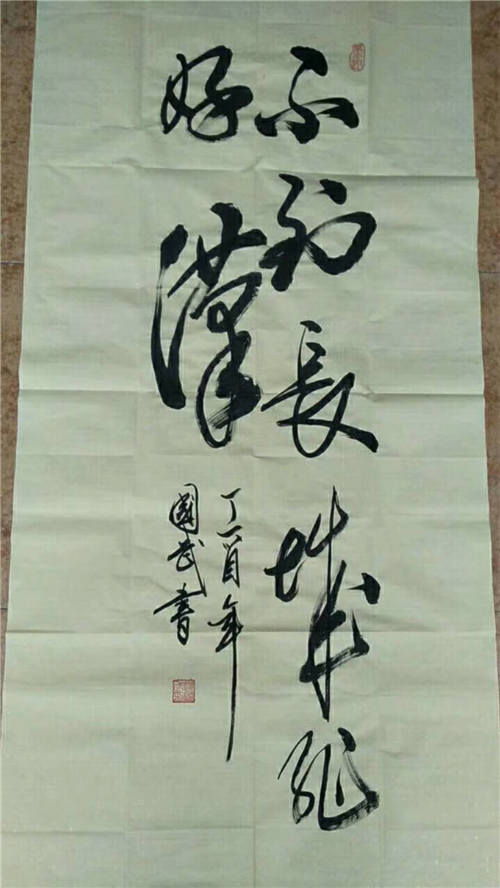 不到長城非
好漢
丁酉年
國武書